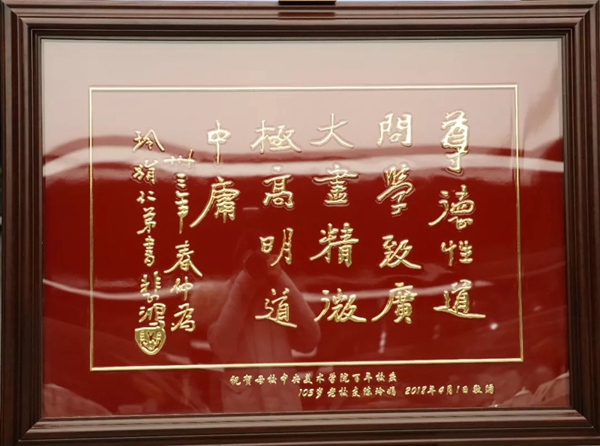 尊德性道
問學致廣
大盡精微
極高明道
中庸
卅三年春仲為
玲娟仁弟書 悲鴻
祝賀母校中央美术学院百年校庆
103岁老校友陈玲娟 2018年4月1日敬请